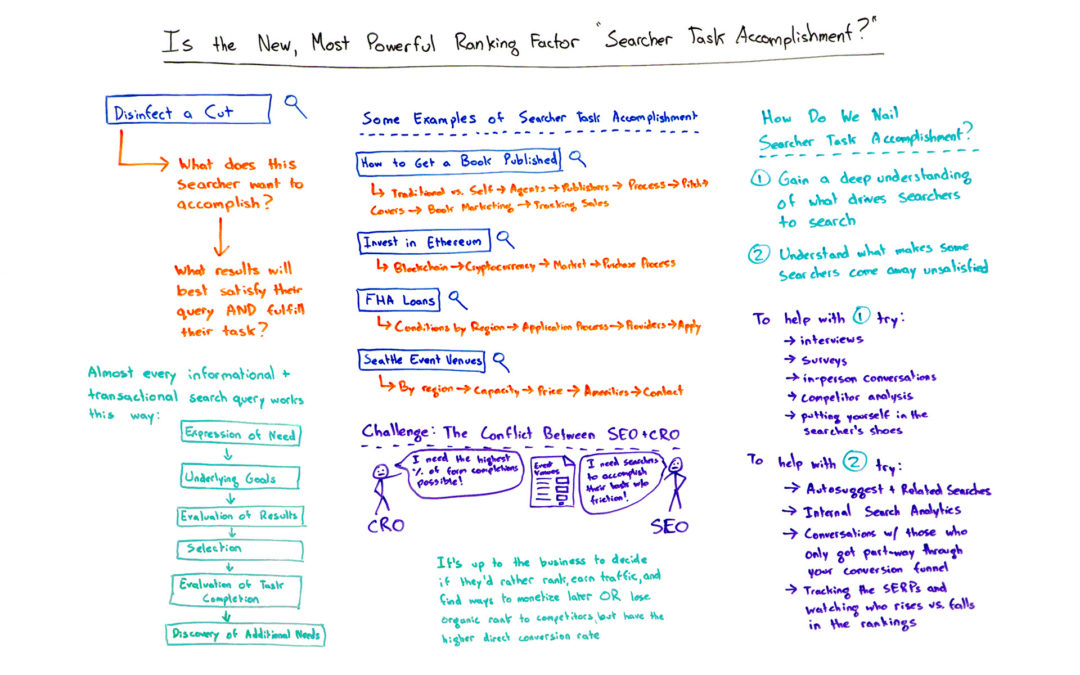 Is the New, Most Powerful Ranking Factor "Searcher Task Accomplishment?"
Disinfect a Cut
What does this
Searcher want to
accomplish?
What results will
best satisfy their
query AND fulfill
their task?
Almost every informational +
transactional search query works
this way:
Expression of Need
Underlying Goals
Evaluation of Results
Selection
Evaluation of Task
Completion
Discovery of Additional Needs
Some Examples of Searcher Task Accomplishment
How to Get a Book Published
Traditional vs. Self → Agents → Publishers → Process → Pitch →
Covers → Book Marketing → Tracking Sales
Invest in Ethereum
Blockchain → Cryptocurrency → Market → Purchase Process
FHA Loans
Conditions by Region → Application Process → Providers → Apply
Seattle Event Venues
By region → Capacity → Price → Amenities → Contact
Challenge: The Conflict Between SEO + CRO
I need the highest
% of form completions
possible!
CRO
Event
Venues
I need searchers
to accomplish
their task w/o
friction!
SEO
It's up to the business to decide
if they'd rather rank, earn traffic, and
find ways to monetize later OR lose
organic rank to competitors, but have the
higher direct conversion rate
How Do We Nail
Searcher Task Accomplishment?
① Gain a deep understanding
of what drives searchers
to search
② Understand what makes some
searchers come away unsatisfied
To help with ① try:
→ interviews
→ surveys
→ in-person conversations
→ competitor analysis
→ putting yourself in the
searcher's shoes
To help with ② try:
→ Autosuggest + Related Searches
→ Internal Search Analytics
→ Conversations w/ those who
only got part-way through
your conversion funnel
→ Tracking the SERPs and
watching who rises vs. falls
in the rankings